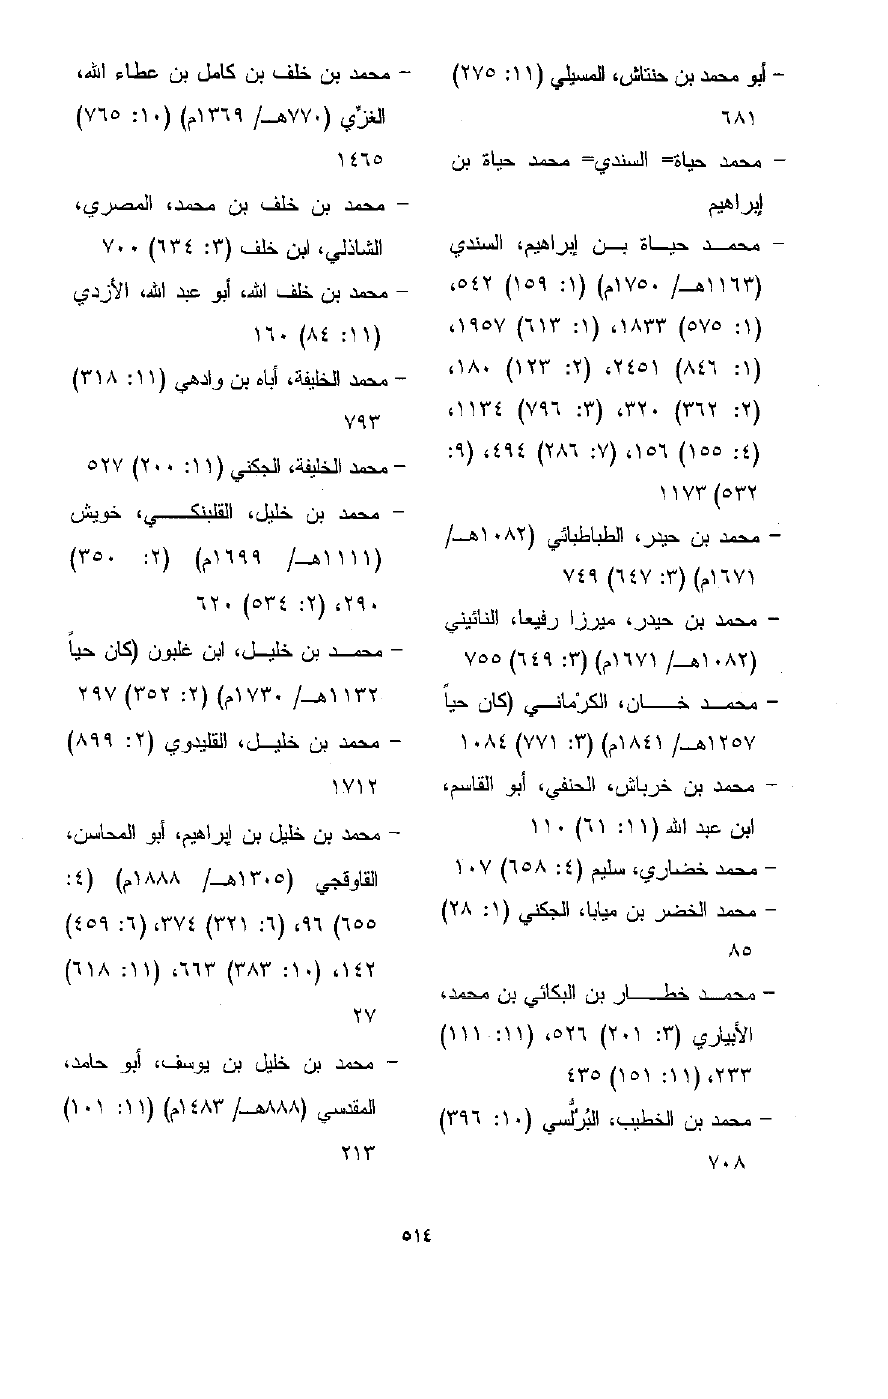 - أبو محمد بن حنتاش، المسيلي (١١: ٢٧٥)
٦٨١
- محمد حياة= السندي= محمد حياة بن
إبراهيم
- محمد حياة بن إبراهيم، السندي
(١١٦٣هـ/ ١٧٥٠م) (١: ١٥٩) ٥٤٢،
(١: ٥٧٥) ١٨٣٣، (١: ٦١٣) ١٩٥٧،
(١: ٨٤٦) ٢٤٥١، (٢: ١٢٣) ١٨٠،
(٢: ٣٦٢) ٣٢٠، (٣: ٧٩٦) ١١٣٤،
(٤: ١٥٥) ١٥٦، (٧: ٢٨٦) ٤٩٤، (٩:
٥٣٢) ١١٧٣
- محمد بن حيدر، الطباطبائي (١٠٨٢هـ/
١٦٧١م) (٣: ٦٤٧) ٧٤٩
- محمد بن حيدر، ميرزا رفيعا، النائيني
(١٠٨٢هـ/ ١٦٧١م) (٣: ٦٤٩) ٧٥٥
- محمد خان، الكرْماني (كان حياً
١٢٥٧هـ/ ١٨٤١م) (٣: ٧٧١) ١٠٨٤
- محمد بن خرباش، الحنفي، أبو القاسم،
ابن عبد الله (١١: ٦١) ١١٠
- محمد خضاري، سليم (٤: ٦٥٨) ١٠٧
- محمد الخضر بن مايابا، الجكني (١: ٢٨)
٨٥
- محمد خطار بن البكائي بن محمد،
الأبياري (٣: ٢٠١) ٥٢٦، (١١: ١١١)
٢٣٣، (١١: ١٥١) ٤٣٥
- محمد بن الخطيب، البُرلُّسي (١٠: ٣٩٦)
٧٠٨
- محمد بن خلف بن كامل بن عطاء الله،
الغزّي (٧٧٠هـ/ ١٣٦٩م) (١٠: ٧٦٥)
١٤٦٥
- محمد بن خلف بن محمد، المصري،
الشاذلي، ابن خلف (٣: ٦٣٤) ٧٠٠
- محمد بن خلف الله، أبو عبد الله، الأزدي
(١١: ٨٤) ١٦٠
- محمد الخليفة، أباه بن وادهي (١١: ٣١٨)
٧٩٣
- محمد الخليفة، الجكني (١١: ٢٠٠) ٥٢٧
- محمد بن خليل، القلبنكي، خويش
(١١١١هـ/ ١٦٩٩م) (٢: ٣٥٠)
٢٩٠، (٢: ٥٣٤) ٦٢٠
- محمد بن خليل، ابن غلبون (كان حياً
١١٣٢هـ/ ١٧٣٠م) (٢: ٣٥٢) ٢٩٧
- محمد بن خليل، القليدوي (٢: ٨٩٩)
١٧١٢
- محمد بن خليل بن إبراهيم، أبو المحاسن،
القاوقجي (١٣٠٥هـ/ ١٨٨٨م) (٤:
٦٥٥) ٩٦، (٦: ٣٢١) ٣٧٤، (٦: ٤٥٩)
١٤٢، (١٠: ٣٨٣) ٦٦٣، (١١: ٦١٨)
٢٧
- محمد بن خليل بن يوسف، أبو حامد،
المقدسي (٨٨٨هـ/ ١٤٨٣م) (١١: ١٠١)
٢١٣
٥١٤